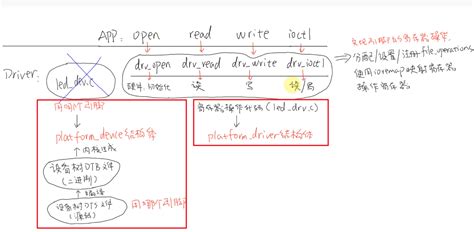 APP: open read write ioctl
Driver: led_drv.c
drv_open drv_read drv_write drv_ioctl
硬件初始化 读 写 读/写
分配/设置/注册 file_operations
使用ioremap映射寄存器
操作寄存器
platform_device结构体
内核生成
设备树DTB文件
(二进制)
编译
设备树DTS文件
(源码)
寄存器操作代码(led_drv.c)
platform_driver结构体